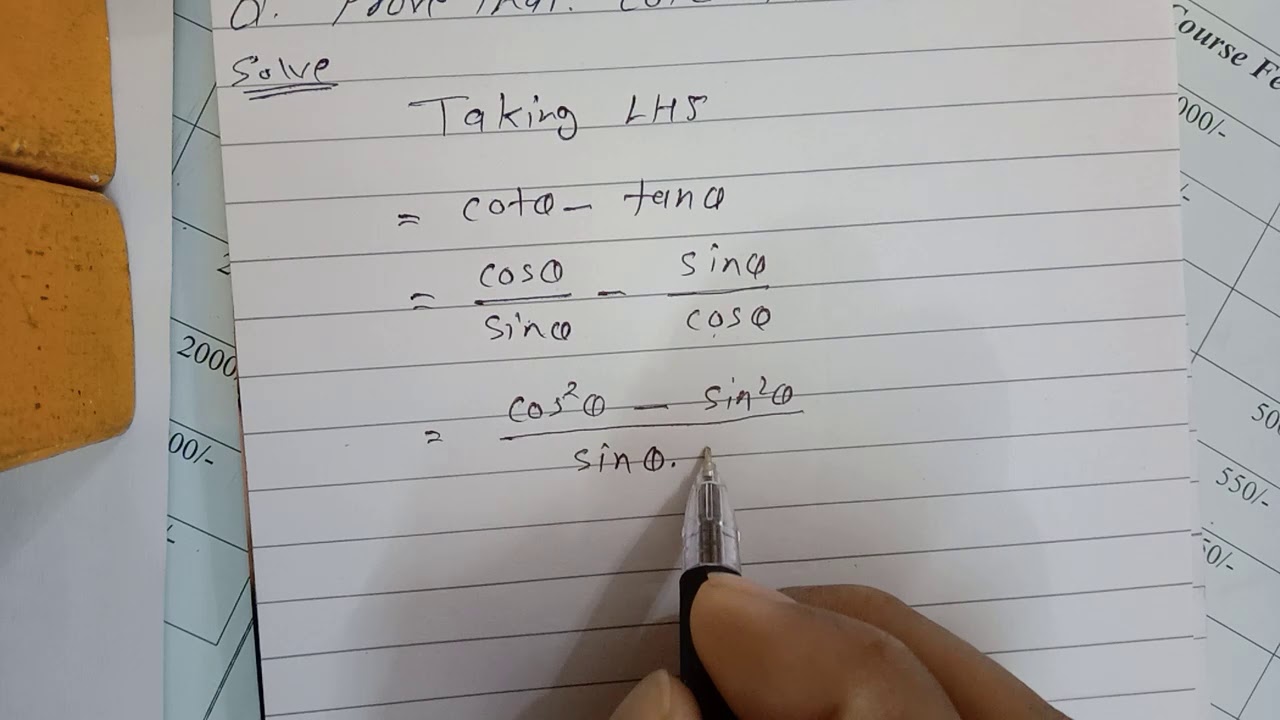 Q. Prove that:
Solve
Taking LHS
= cotθ - tanθ
= cosθ/sinθ - sinθ/cosθ
= cos²θ - sin²θ
sinθ.
Course Fe
000/-
2000
00/-
50
550/-
50/-